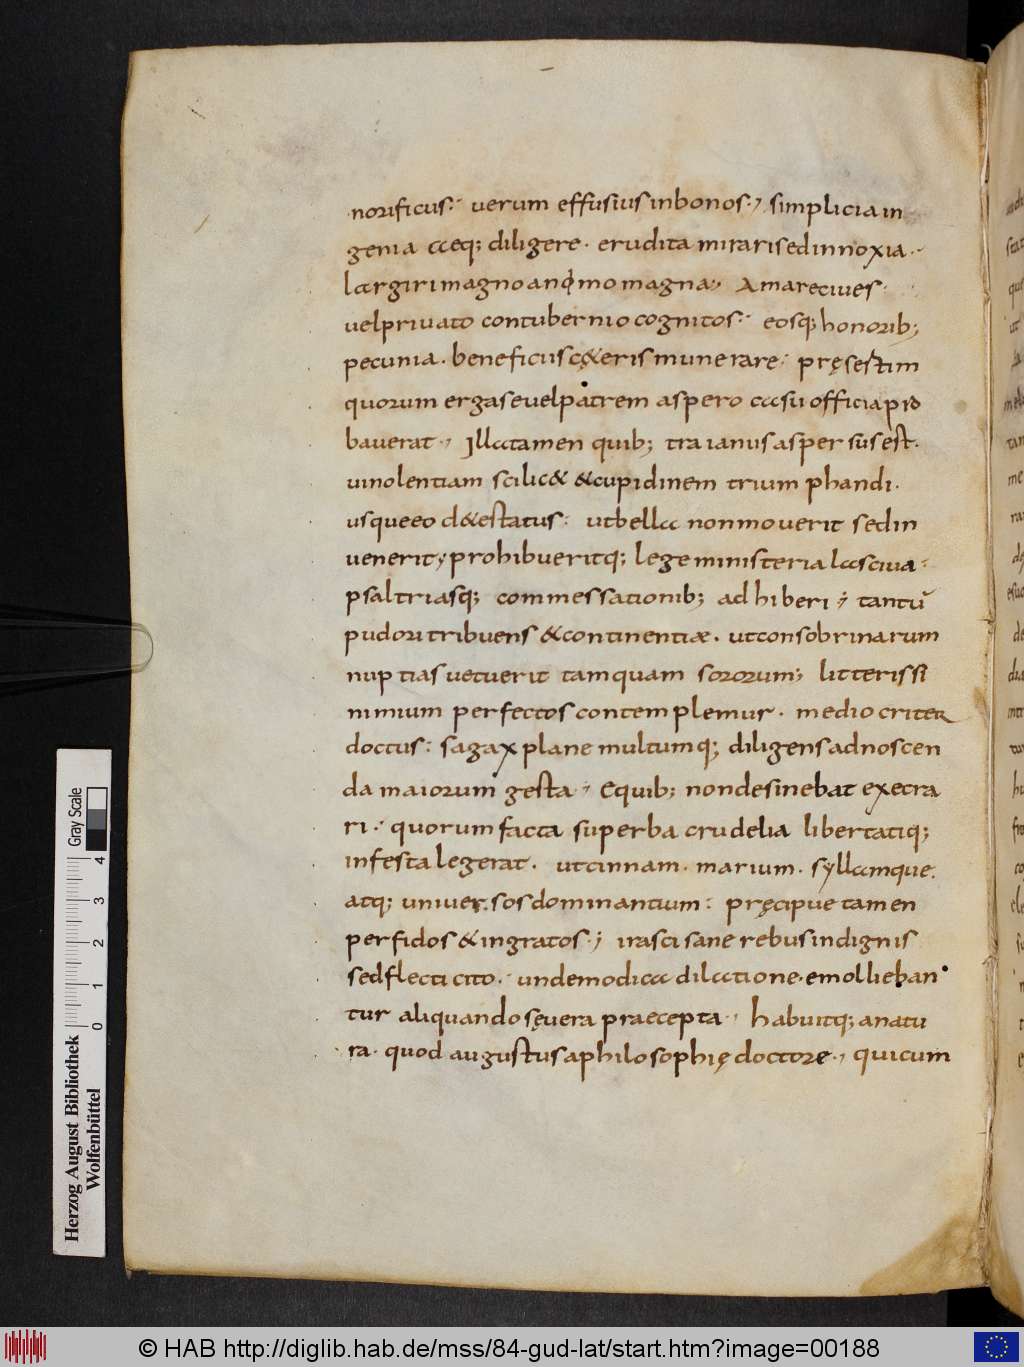 norificus. verum effusius inbonos., simplicia in
genia aeq; diligere. erudita mirari sed innoxia.
largiri magno animo magna, Amare cives
vel privato contubernio cognitos. eosq; honorib;
pecunia. beneficiis cęteris munerare. pręsertim
quorum erga se vel patrem aspero casu officia pro
baverat., Illa tamen quib; traianus aspersus est.
vinolentiam scilic& &cupidinem triumphandi.
usque eo d&estatus: ut bella non moverit sed in
venerit, prohibueritq; lege ministeria lasciva.
psaltriasq; commessationib; adhiberi; tantū
pudori tribuens &continentiæ. ut consobrinarum
nuptias vetuerit tamquam sororum; litteris si
nimium perfectos contemplemur. mediocriter
doctus: sagax plane multumq; diligens ad noscen
da maiorum gesta., E quib; non desinebat execra
ri. quorum facta superba crudelia libertatiq;
infesta legerat. ut cinnam. marium. syllamque.
atq; universos dominantium: pręcipue tamen
perfidos & ingratos.; irasci sane rebus indignis
sed flecti cito. unde modica dilatione. emollieban
tur aliquando sęvera praecepta., habuitq; a natu
ra. quod augustus a philosophię doctore., qui cum
Gray Scale
0 1 2 3 4
Herzog August Bibliothek
Wolfenbüttel
© HAB http://diglib.hab.de/mss/84-gud-lat/start.htm?image=00188